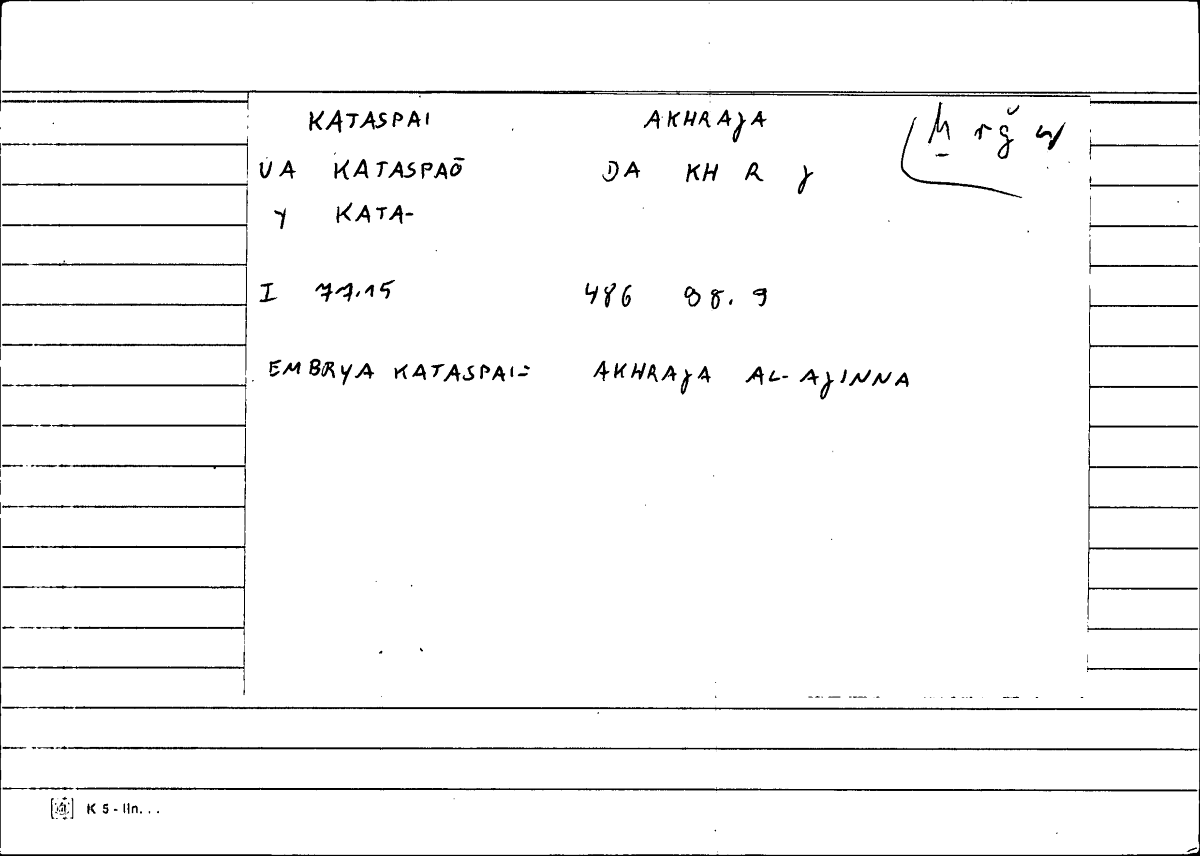 KATASPAI AKHRAJA
UA KATASPAŌ DA KH R J
Y KATA-
I 77.15 486 98.9
EMBRYA KATASPAI= AKHRAJA AL-AJINNA
K 5 - lin. . .